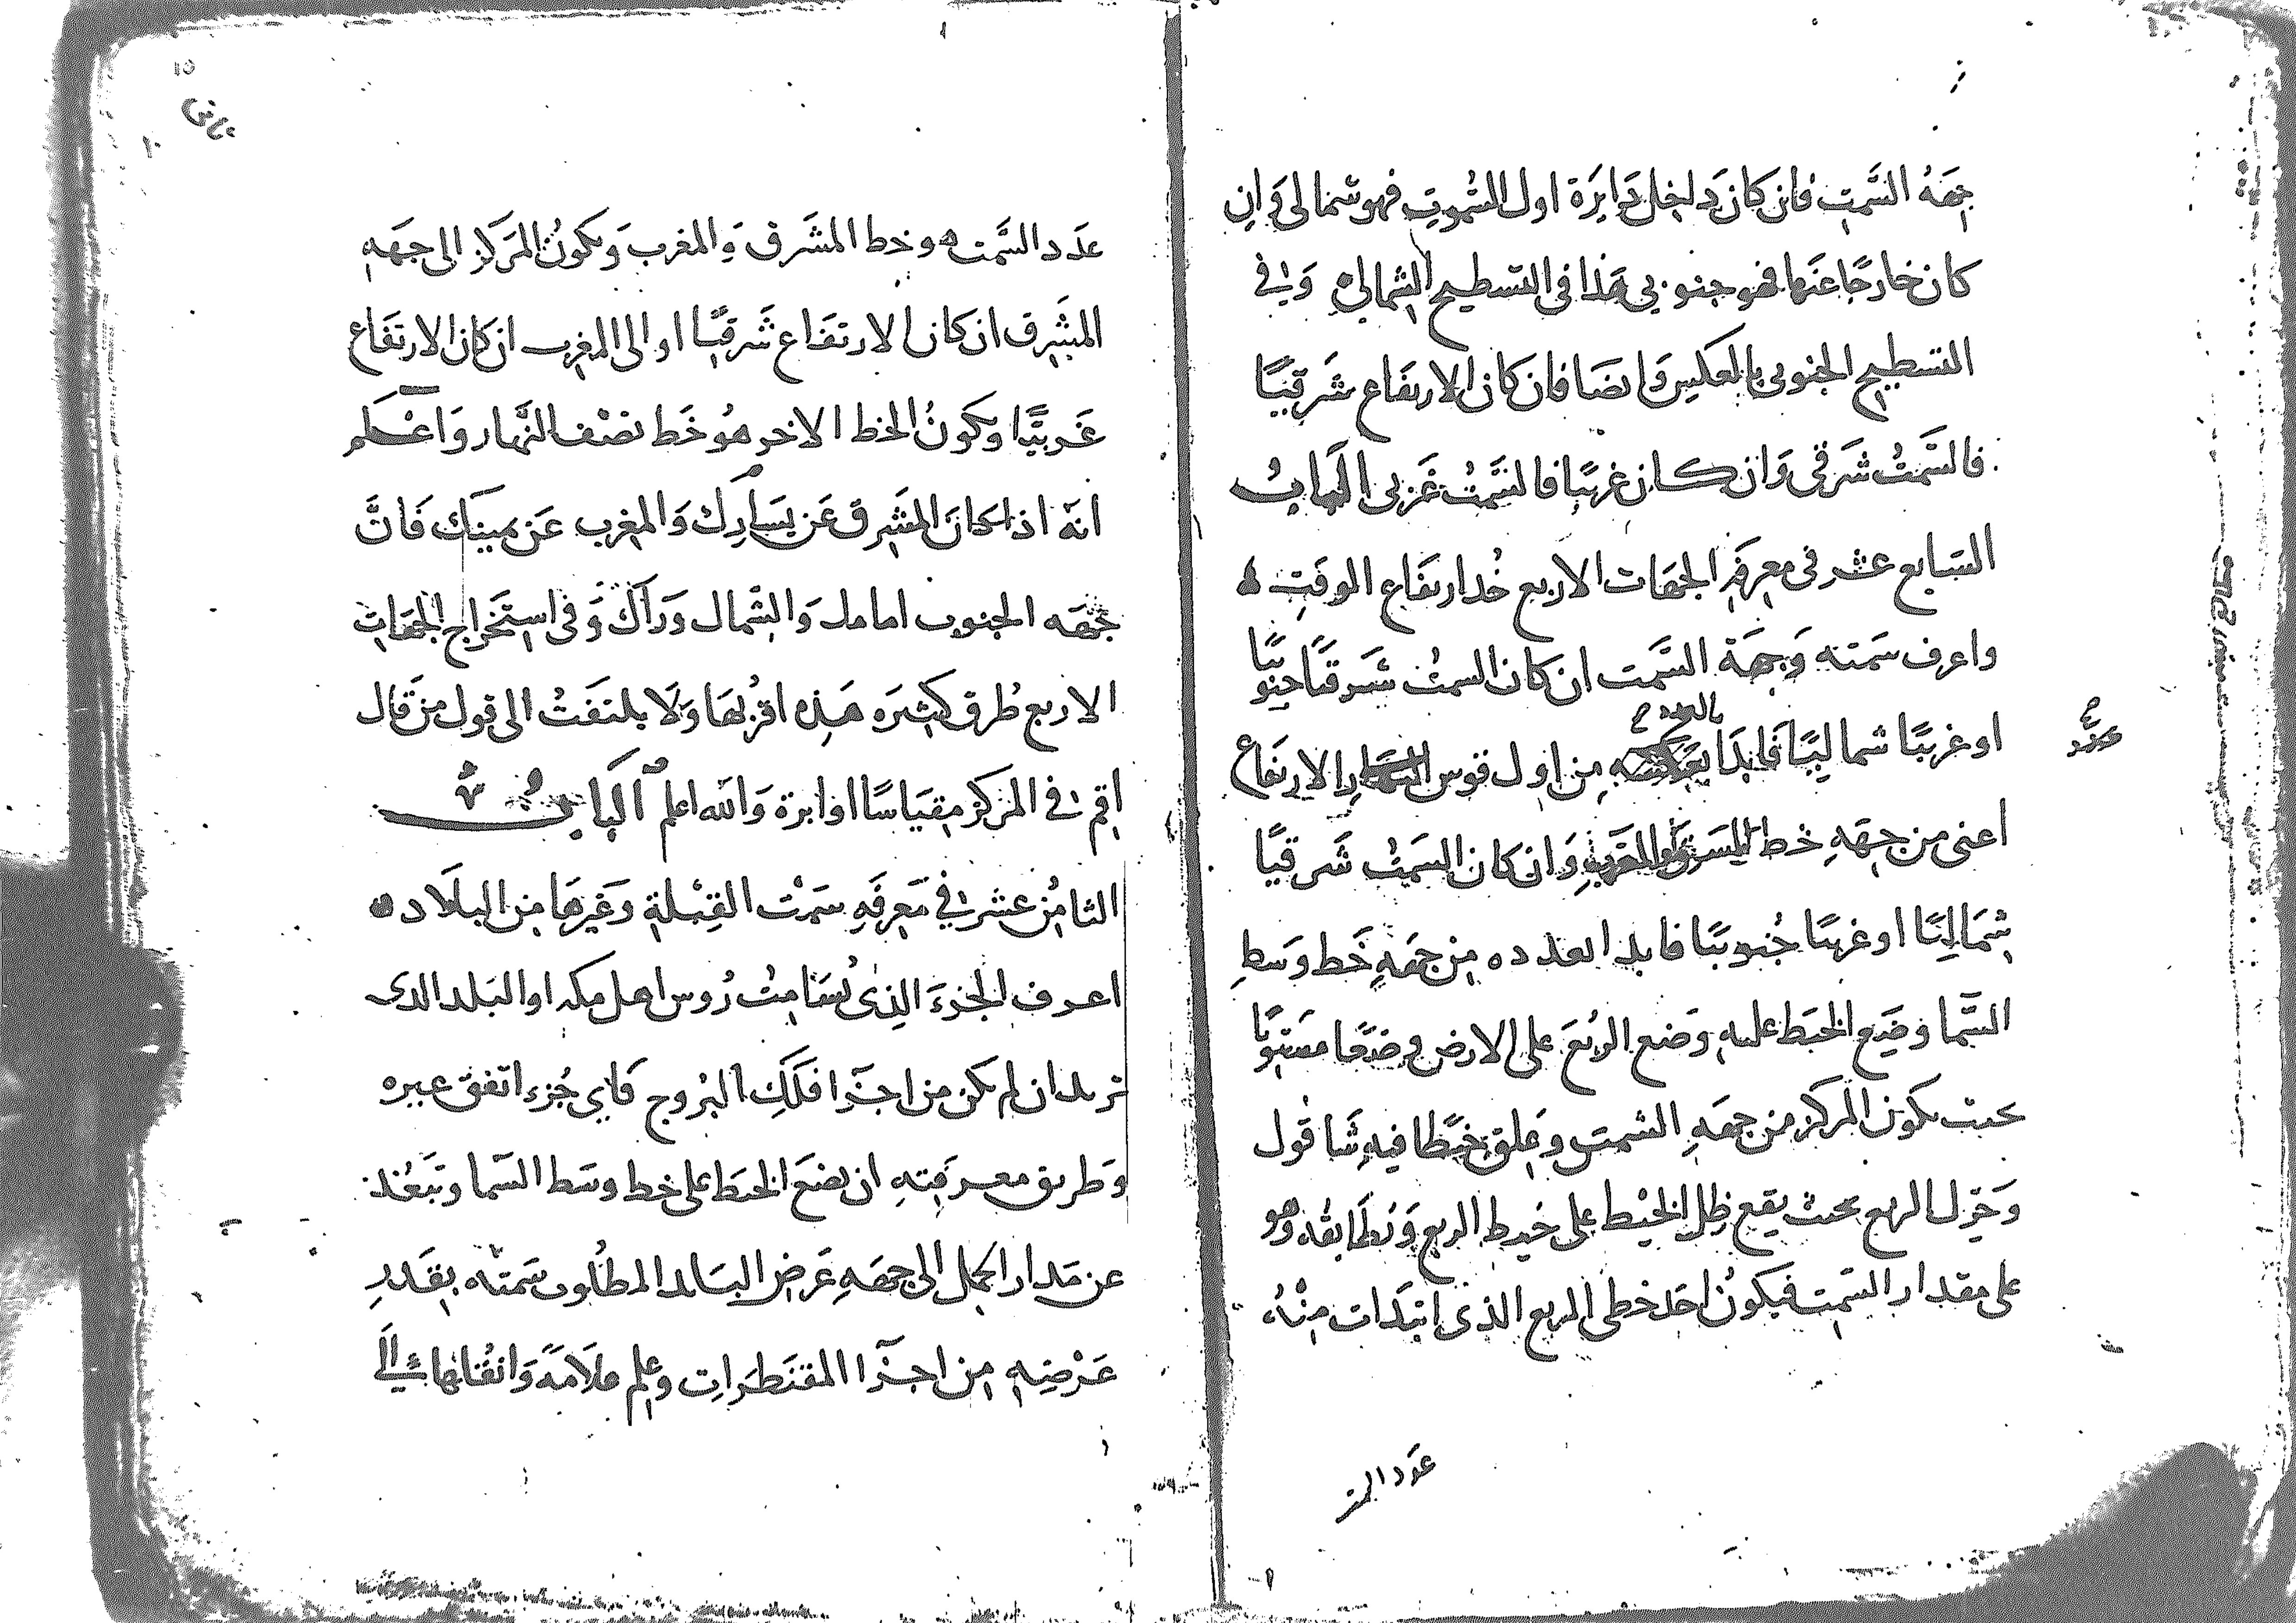 جهة السَّمت فان كان داخل دَايرَة اول السُموتِ فهو شمالى وَان
كان خارجًا عَنها فهو جنوبى هَذا فى التسطيح الشمالى وَفي
التسطيح الجنوبى بالعكس وَايضا فان كان الارتفَاع شَرقيًا
فالسَّمتُ شَرقى وَان كان غربيًا فالسَّمتُ غَربى الباب
السَابع عشر فى معرفَةِ الجهَات الاربع خُد ارتفَاع الوقتِ ه
واعرف سَمته وَجهَة السَّمت ان كان السمتُ شَرقيًا جنوبيًا
اوغربيًا شماليًا فَابدَا بالعدد من اول قوس الارتفاع
اعنى من جهَةِ خط المشرق والمغربِ وَان كان السَمتُ شَرقيًا
شِمَاليًا اوغربيًا جُنوبيًا فابدا بعدده من جهَةِ خَط وَسَطِ
السَّما وضَع الخيَط عليه وَضع الربُعَ على الارض وضعًا مستويًا
بحيث يكون المركز من جهَةِ الشمس وعَلق خيطًا فيه شاقول
وَحَوِّل الربع بحيث يقع ظِل الخيْط على خيط الربع وَيُطَابقُه وهو
على مقدار السَّمت فيكونُ احَد خطى الربع الذى ابتَدَات مِنْهُ
عدد السمـ
عَدَد السَّمت ه وخط المشَرق وَالمغرب وَيكونُ المَركز الى جهَةِ
المشرق ان كان الارتفَاع شَرقيًا او الى المغرب ان كان الارتفَاع
غَربيًّا ويكونُ الخط الاخر هُو خَط نصْف النَّهار وَاعْلَم
انهّ اذا كانَ المشَرق عَن يَسَارك وَالمغرب عَن يمينَك فَانَّ
جهَة الجنوب امامك وَالشمال وَرَآكَ وَفى استَخراج الجهَات
الاربع طُرق كثيَرَه هَذِه اقرَبُهَا وَلَا يلتفَتُ الى قول مَن قَال
اقم فى المركز مقيَاسًا اوابرة وَالله اعلم البابُ
الثامنُ عشر فى مَعرفَةِ سَمْت القِبْلةِ وَغَيرهَا من البلَاد ه
اعرف الجُزءَ الذِى يُسَامِتُ رُوس اهل مكه اوالبَلد الذى
تريد ان لم يكن من اجزَا فَلَكِ البُروج فَاى جُزء اتفق غيره
وَطريق معرفَتِهِ ان تضعَ الخيَط على خط وسَط السَّما وتبعُد
عن مَدار الحمل الى جهَةِ عَرض البَلد المطلُوب سَمتُه بقَدرِ
عَرْضِهِ من اجزَا المقنَطرَاتِ وعلم علَامَةً وَانقُلها الَى